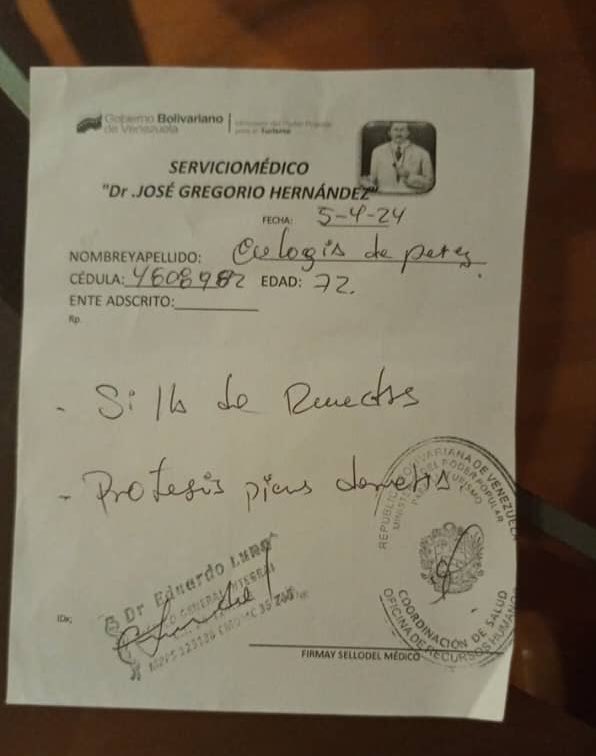 Gobierno Bolivariano
de Venezuela
Ministerio del Poder Popular
para el Turismo
SERVICIOMÉDICO
"Dr .JOSÉ GREGORIO HERNÁNDEZ"
FECHA: 5-4-24
NOMBREYAPELLIDO: Eulogis de perez.
CÉDULA: 4608982 EDAD: 72.
ENTE ADSCRITO:
Rp.
- Silla de Ruedas
- Protesis piern derecha
Dr Eduardo Luna
MEDICO GENERAL INTEGRAL
IDx;
FIRMAY SELLODEL MÉDICO
REPUBLICA BOLIVARIANA DE VENEZUELA
MINISTERIO DEL PODER POPULAR
PARA EL TURISMO
COORDINACIÓN DE SALUD
OFICINA DE RECURSOS HUMANOS